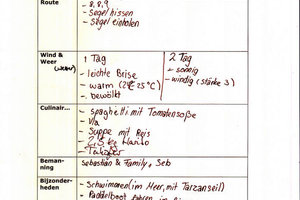 Route
- 8, 8, 9
- segel hissen
- segel einholen
Wind &
Weer
1 Tag
- leichte Brise
- warm (25°C)
- bewölkt
2 Tag
- sonnig
- windig (stärke 3)
Culinair...
- spaghetti mit Tomatensoße
- Vla
- Suppe mit Reis
- 2,5 kg Haribo
Beman-
ning
sebastian & Family, Seb
Bijzonder-
heden
- Schwimmen (im Meer, mit Tarzanseil)
- Paddelboot fahren im